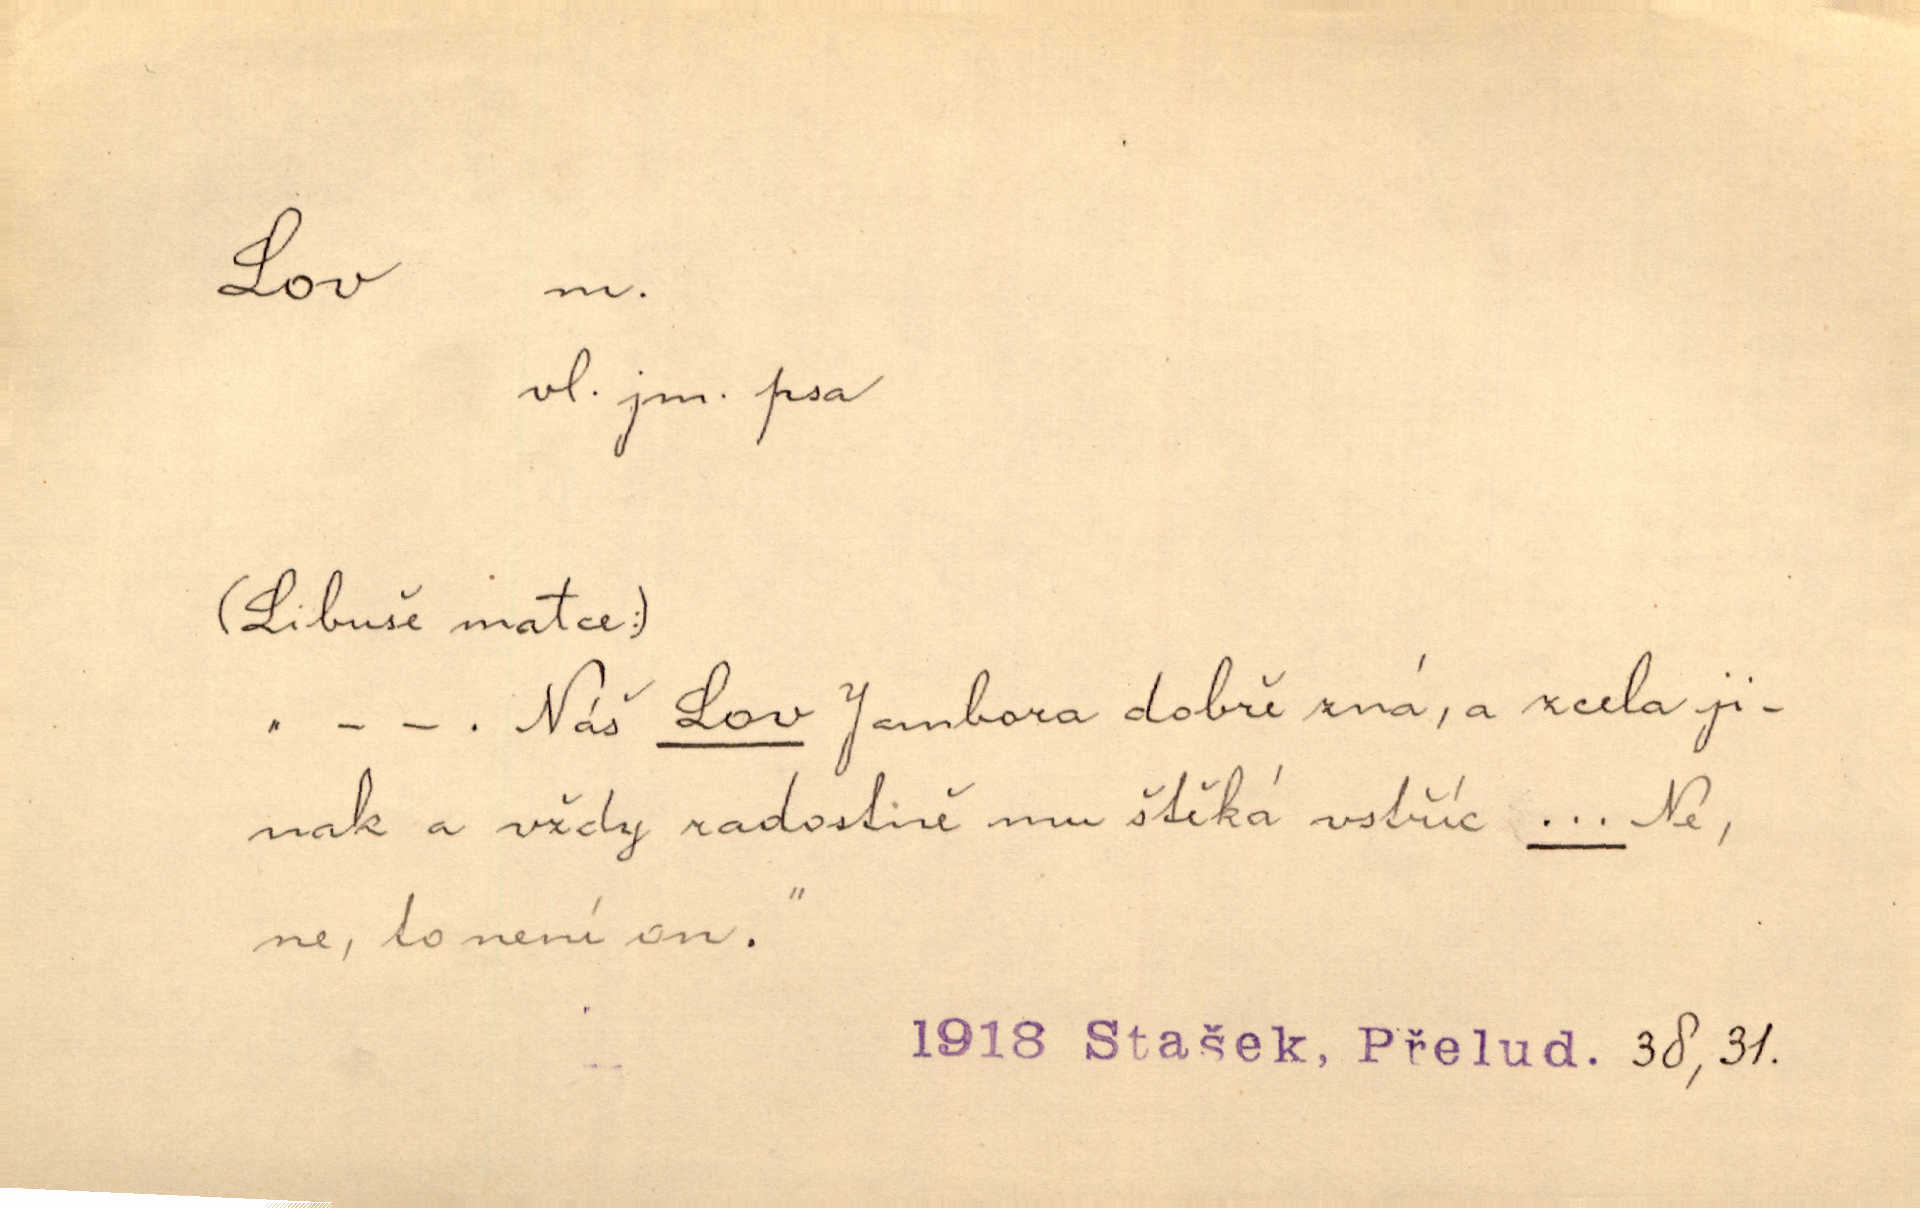 Lov m.
vl. jm. psa
(Libuše matce:)
„ – – . Náš Lov Jambora dobře zná, a zcela ji-
nak a vždy radostině mu štěká vstříc ... Ne,
ne, to není on."
1918 Stašek, Přelud. 38, 31.